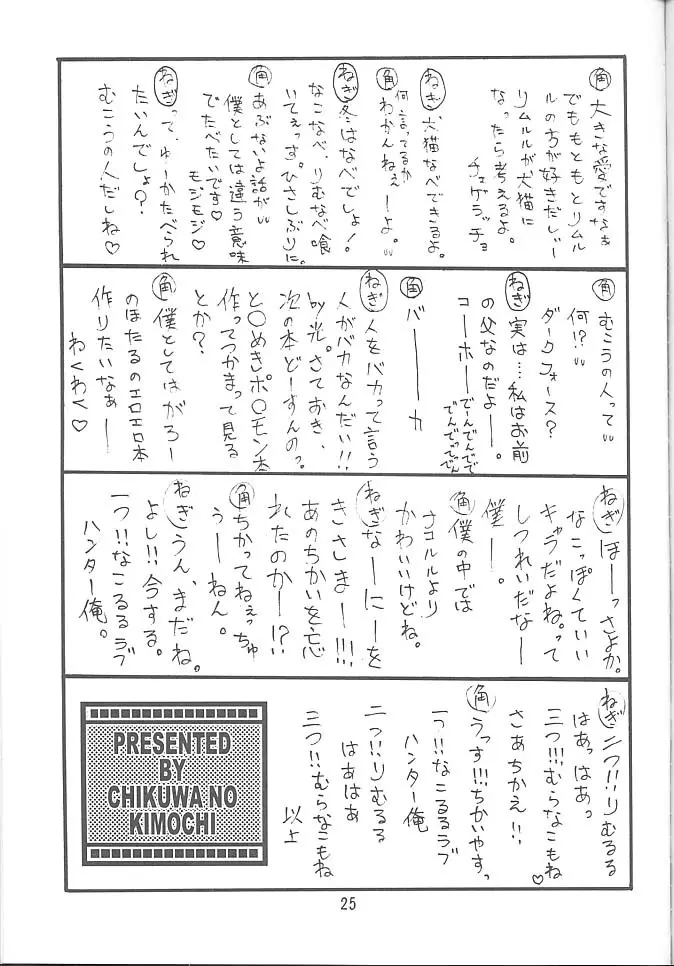 角 大きな愛ですなぁ
でももともとリムル
ルの方が好きだしぃー
リムルルが犬猫に
なったら考えるよ。
チェゲラッチョ
ねぎ 犬猫なべできるよ。
角 何言ってるか
わかんねぇーよ。〃
ねぎ 冬はなべでしょ!
なこなべ、りむなべ喰
いてぇっす。ひさしぶりに。
角 あぶないよ話が〃
僕としては違う意味
でたべたいです♡
モジモジ♡
ねぎ って、ゆーかたべられ
たいんでしょ?
むこうの人だしね♡
角 むこうの人って〃
何!?〃
ダークフォース?
ねぎ 実は…私はお前
の父なのだよー。
コーホー でーんでんでんで
でんでっでん
角 バーーーカ
ねぎ 人をバカって言う
人がバカなんだい!!
by光。さておき、
次の本どーすんの?
と〇めきポ〇モン本
作ってつかまって見る
とか?
角 僕としてはがろー
のほたるのエロエロ本
作りたいなぁー
わくわく♡
ねぎ ほーっさよか。
なこっぽくていい
キャラだよね。って
しつれいだなー
僕ー。
角 僕の中では
ナコルルより
かわいいけどね。
ねぎ なーにーを
きさしまー!!!
あのちかいを忘
れたのかー!?
角 ちかってねぇっちゅ
うーねん。
ねぎ うん、まだね。
よし!!今する。
一つ!!なこるるラブ
ハンター俺。
ねぎ 二つ!!りむるる
はあっはあっ
三つ!!!むらなこもね♡
さあちかえ!!
角 うっす!!!ちかいやすっ
一っ!!なこるるラブ
ハンター俺
二っ!!りむるる
はあはあ
三つ!!むらなこもね
以上
PRESENTED
BY
CHIKUWA NO
KIMOCHI
25